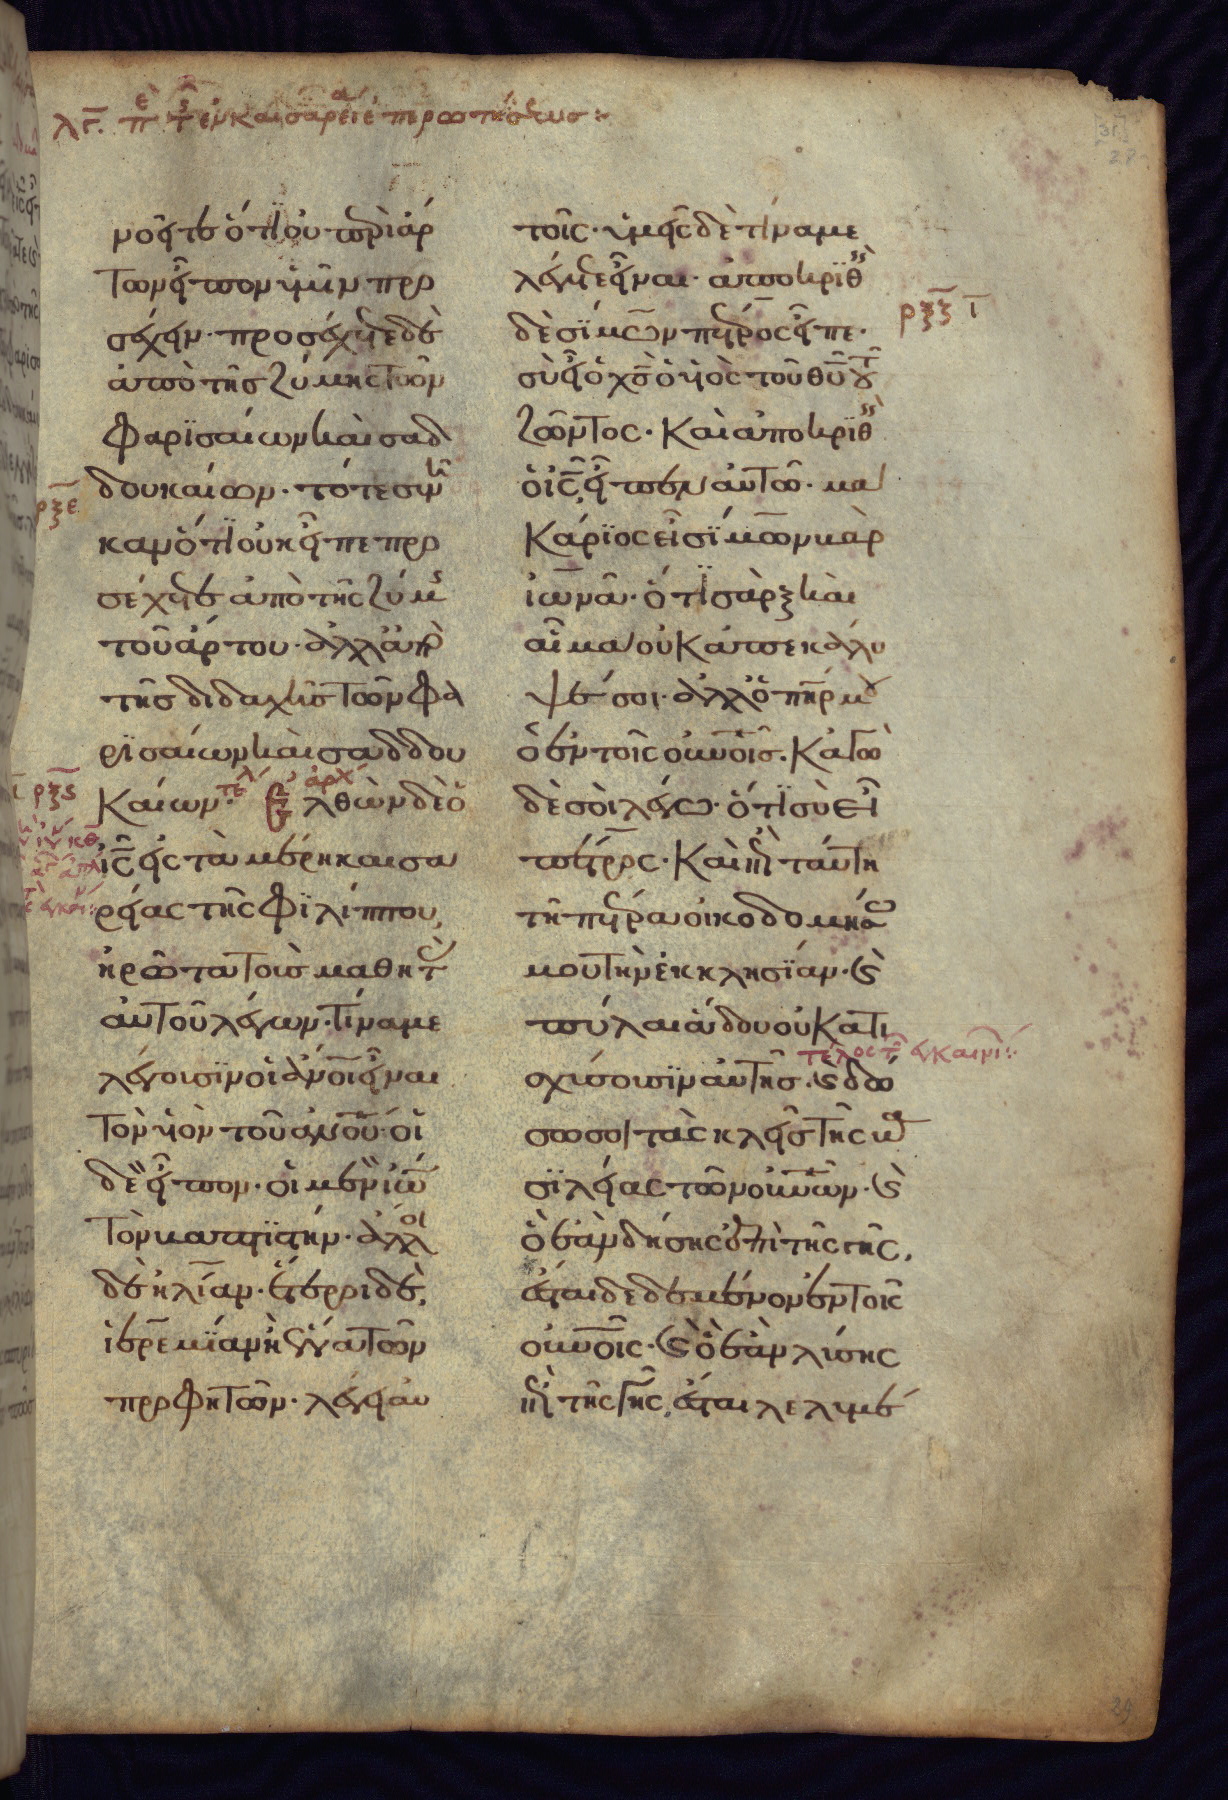 λγ. πε τς ἐν καισαρεία ἐπερωτήσεως:
νοεῖτε ὅτι οὐ περὶ ἄρ
των εἶπον ὑμῖν προ
σέχειν· προσέχετε δὲ
ἀπὸ τῆς ζύμης τῶν
Φαρϊσαίων καὶ σαδ
δουκαίων· τότε συνῆ
καν ὅτι οὐκ εἶπε προ
σέχειν ἀπὸ τῆς ζύμης
τοῦ ἄρτου· ἀλλ' ἀπὸ
τῆς διδαχῆς τῶν Φα
ρϊσαίων καὶ σαδδου
Καίων· τέλ ἀρχ Ἐλθὼν δὲ ὁ
ἰς εἰς τὰ μέρη καισα
ρείας τῆς Φϊλίππου,
ἠρώτα τοὺς μαθητὰς
αὐτοῦ λέγων· τίνα με
λέγουσϊν οἱ ἀνοι εἶναι
τὸν υἱὸν τοῦ ἀνου· οἱ
δὲ εἶπον· οἱ μὲν ἰω
τὸν βαπτϊστήν· ἄλλοι
δὲ ἠλίαν· ἕτεροι δὲ,
ἱερεμίαν ἢ ἕνα τῶν
προφητῶν· λέγει αὐ
τοῖς· ὑμεῖς δὲ τίνα με
λέγετε εἶναι· ἀποκρϊθεὶς
δὲ σϊμων πέτρος εἶπε·
σὺ εἶ ὁ χς ὁ υἱὸς τοῦ θυ τοῦ
ζῶντος· Καὶ ἀποκρϊθεὶς
ὁ ις εἶπεν αὐτῶ· μα
Κάρϊος εἶ σϊμων βὰρ
ἰωνᾶ· ὅτι σὰρξ καὶ
αἷμα οὐκ ἀπεκάλυ
ψέ σοι· ἀλλ' ὁ πηρ μου
ὁ ἐν τοῖς οὐνοις· Κἀγὼ
δὲ σοὶ λέγω· ὅτι σὺ εἶ
πέτρος· Καὶ ἐπὶ ταύτη
τῆ πέτρα οἰκοδομήσω
μου τὴν ἐκκλησϊαν· καὶ
πύλαι ἅδου οὐ κατι
σχύσουσϊν αὐτῆς· καὶ δώ
τέλος τῆς ἐγκαινί:
σω σοι τὰς κλεῖς τῆς βα
σϊλείας τῶν οὐνων· καὶ
ὃ ἐὰν δήσης ἐπὶ τῆς γῆς,
ἔσται δεδεμένον ἐν τοῖς
οὐνοις· καὶ ὃ ἐὰν λύσης
ἐπὶ τῆς γῆς, ἔσται λελυμέ
ρξε
ρξς
ρξζ ι
29